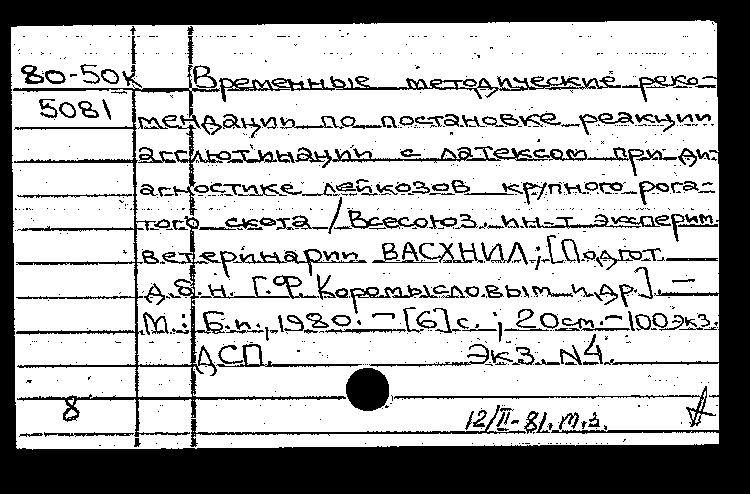 80-50к Временные методические реко-
5081 мендации по постановке реакции
агглютинации с латексом при ди-
агностике лейкозов крупного рога-
того скота / Всесоюз. ин-т эксперим.
ветеринарии ВАСХНИЛ; [Подгот.
д.б.н. Г.Ф. Коромысловым и др.]. —
М.: Б.и., 1980. — [6] с. ; 20 см. — 100 экз.
ДСП. Экз. N4.
8
12/II-81. т.з.